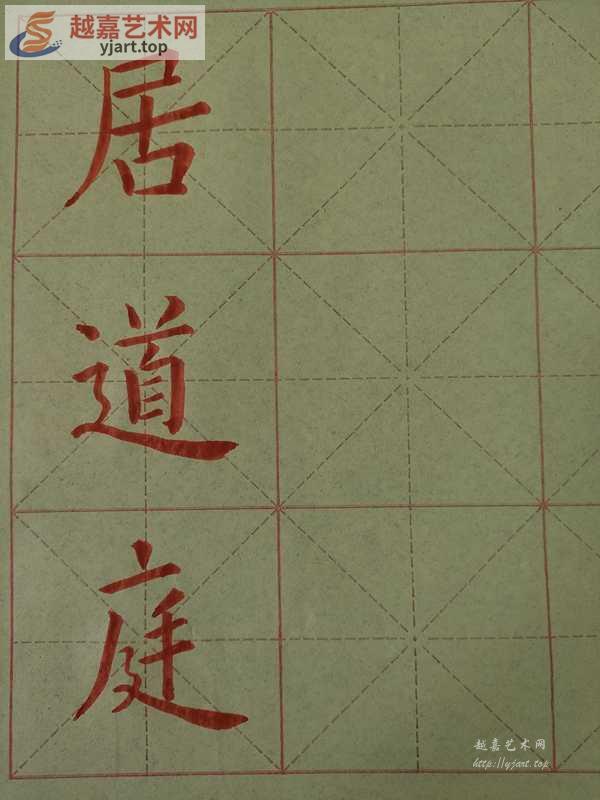 越嘉艺术网
yjart.top
居
道
庭
越嘉艺术网
http://yjart.top